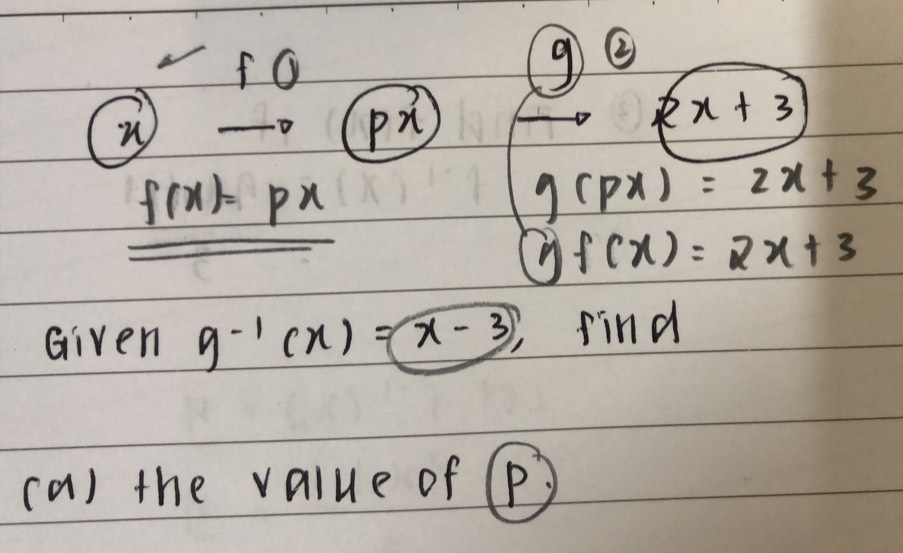 ✓ f ① g ②
x → px → 2x + 3
f(x) = px g(px) = 2x + 3
gf(x) = 2x + 3
Given g⁻¹(x) = x - 3, find
(a) the value of p.